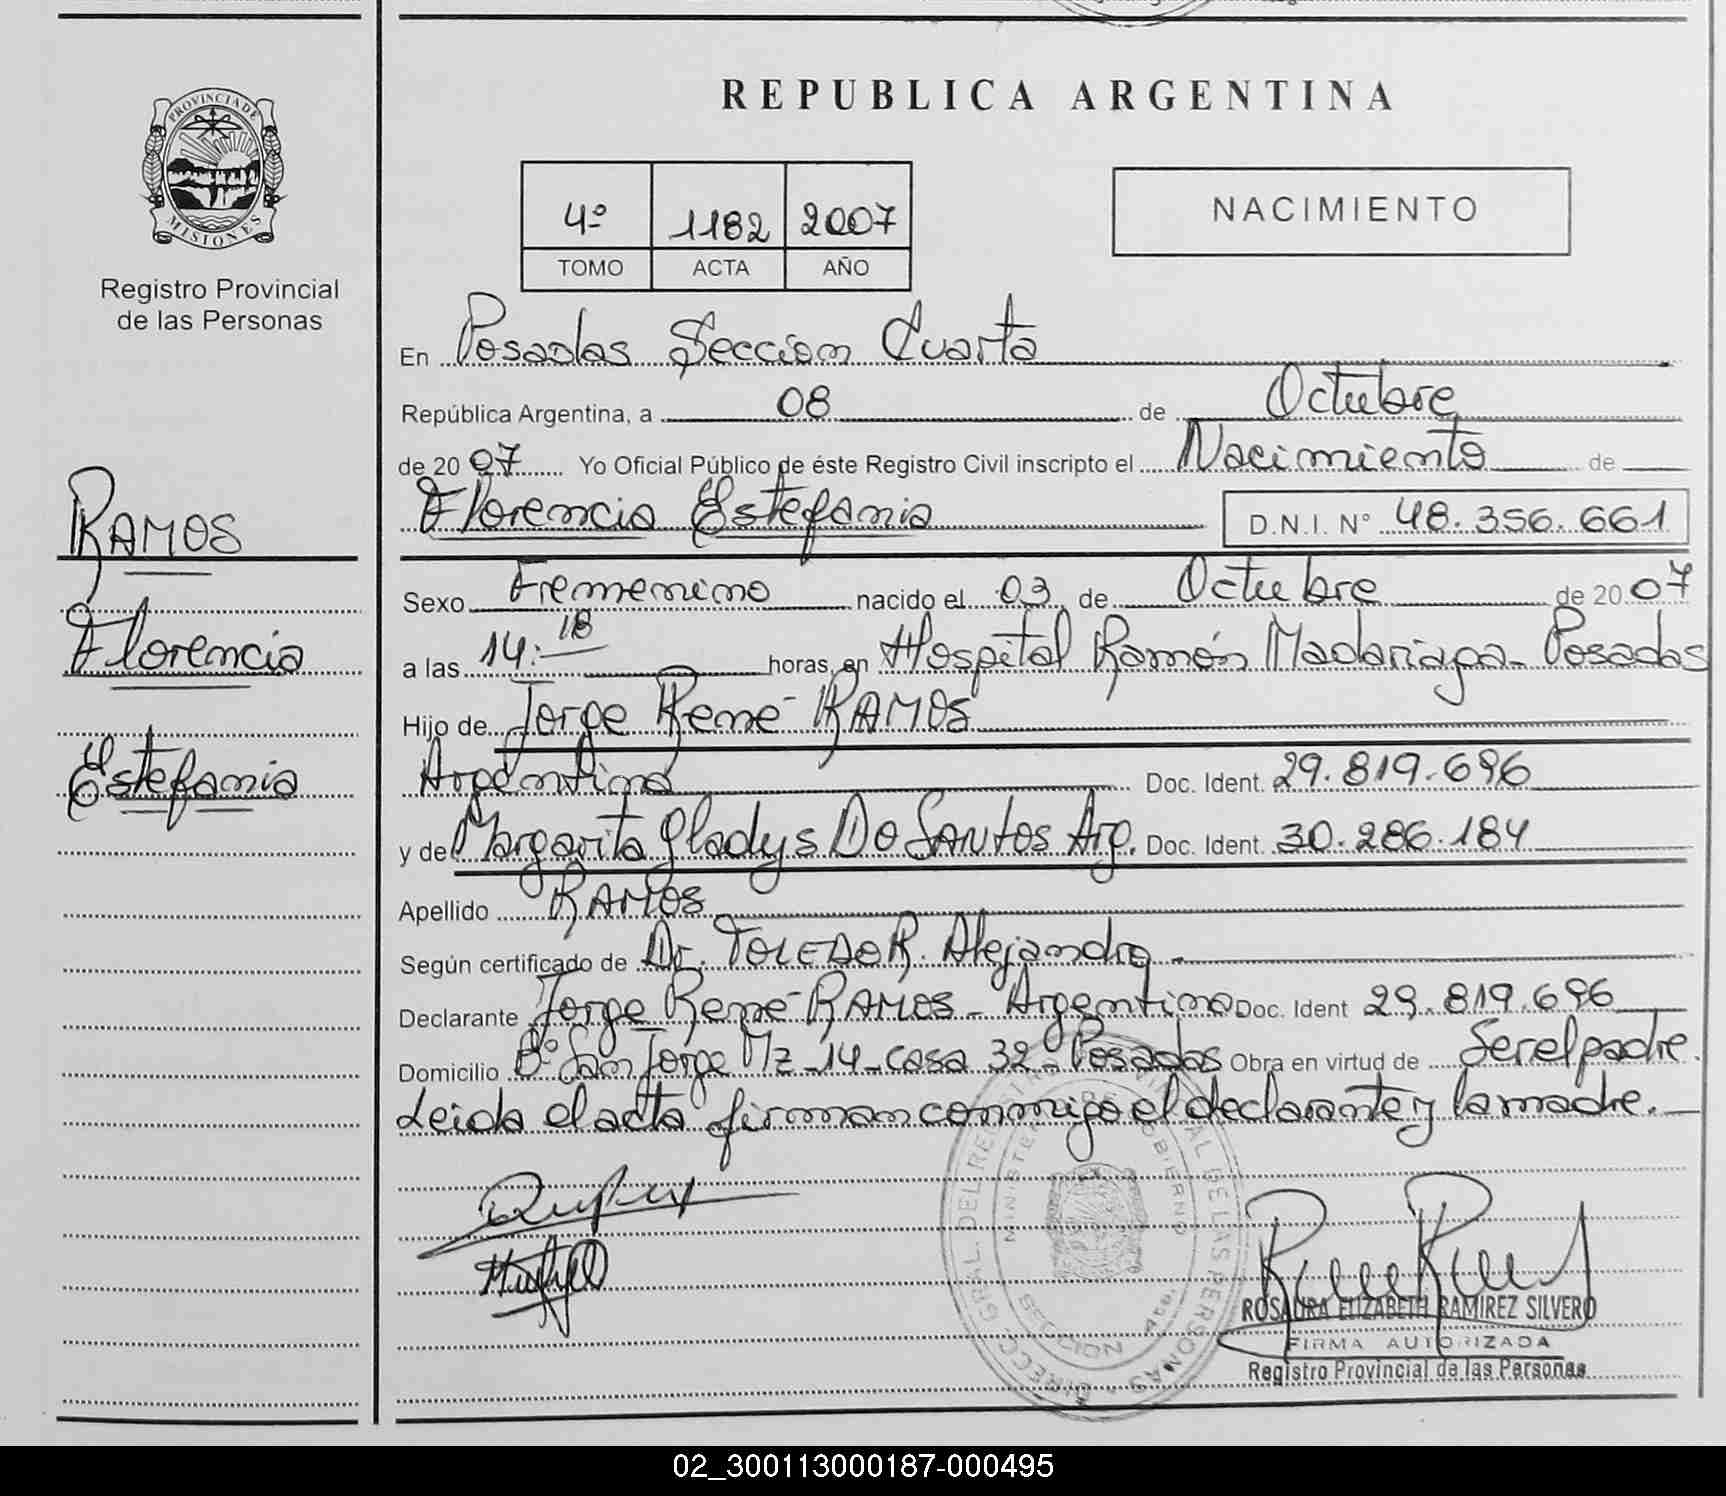 REPUBLICA ARGENTINA
PROVINCIA DE
MISIONES
Registro Provincial
de las Personas
4º 1182 2007
TOMO ACTA AÑO
NACIMIENTO
En Posadas Sección Cuarta
República Argentina, a 08 de Octubre
de 2007 Yo Oficial Público de éste Registro Civil inscripto el Nacimiento de
Florencia Estefania D.N.I. Nº 48.356.661
RAMOS
Florencia
Estefania
Sexo Femenino nacido el 03 de Octubre de 2007
a las 14:18 horas, en Hospital Ramón Madariaga - Posadas
Hijo de Jorge René RAMOS
Argentino Doc. Ident. 29.819.696
y de Margarita Gladys DO SANTOS Arg. Doc. Ident. 30.286.184
Apellido RAMOS
Según certificado de Dr. TOLEDO R. Alejandro
Declarante Jorge René RAMOS - Argentino Doc. Ident 29.819.696
Domicilio Bº San Jorge Mz - 14 - casa 32 - Posadas Obra en virtud de Ser el padre.
Leida el acta firman conmigo el declarante y la madre.
DIRECC. GRAL. DEL REGISTRO PROVINCIAL DE LAS PERSONAS
MINISTERIO DE GOBIERNO
ROSAURA ELIZABETH RAMIREZ SILVERO
FIRMA AUTORIZADA
Registro Provincial de las Personas
02_300113000187-000495